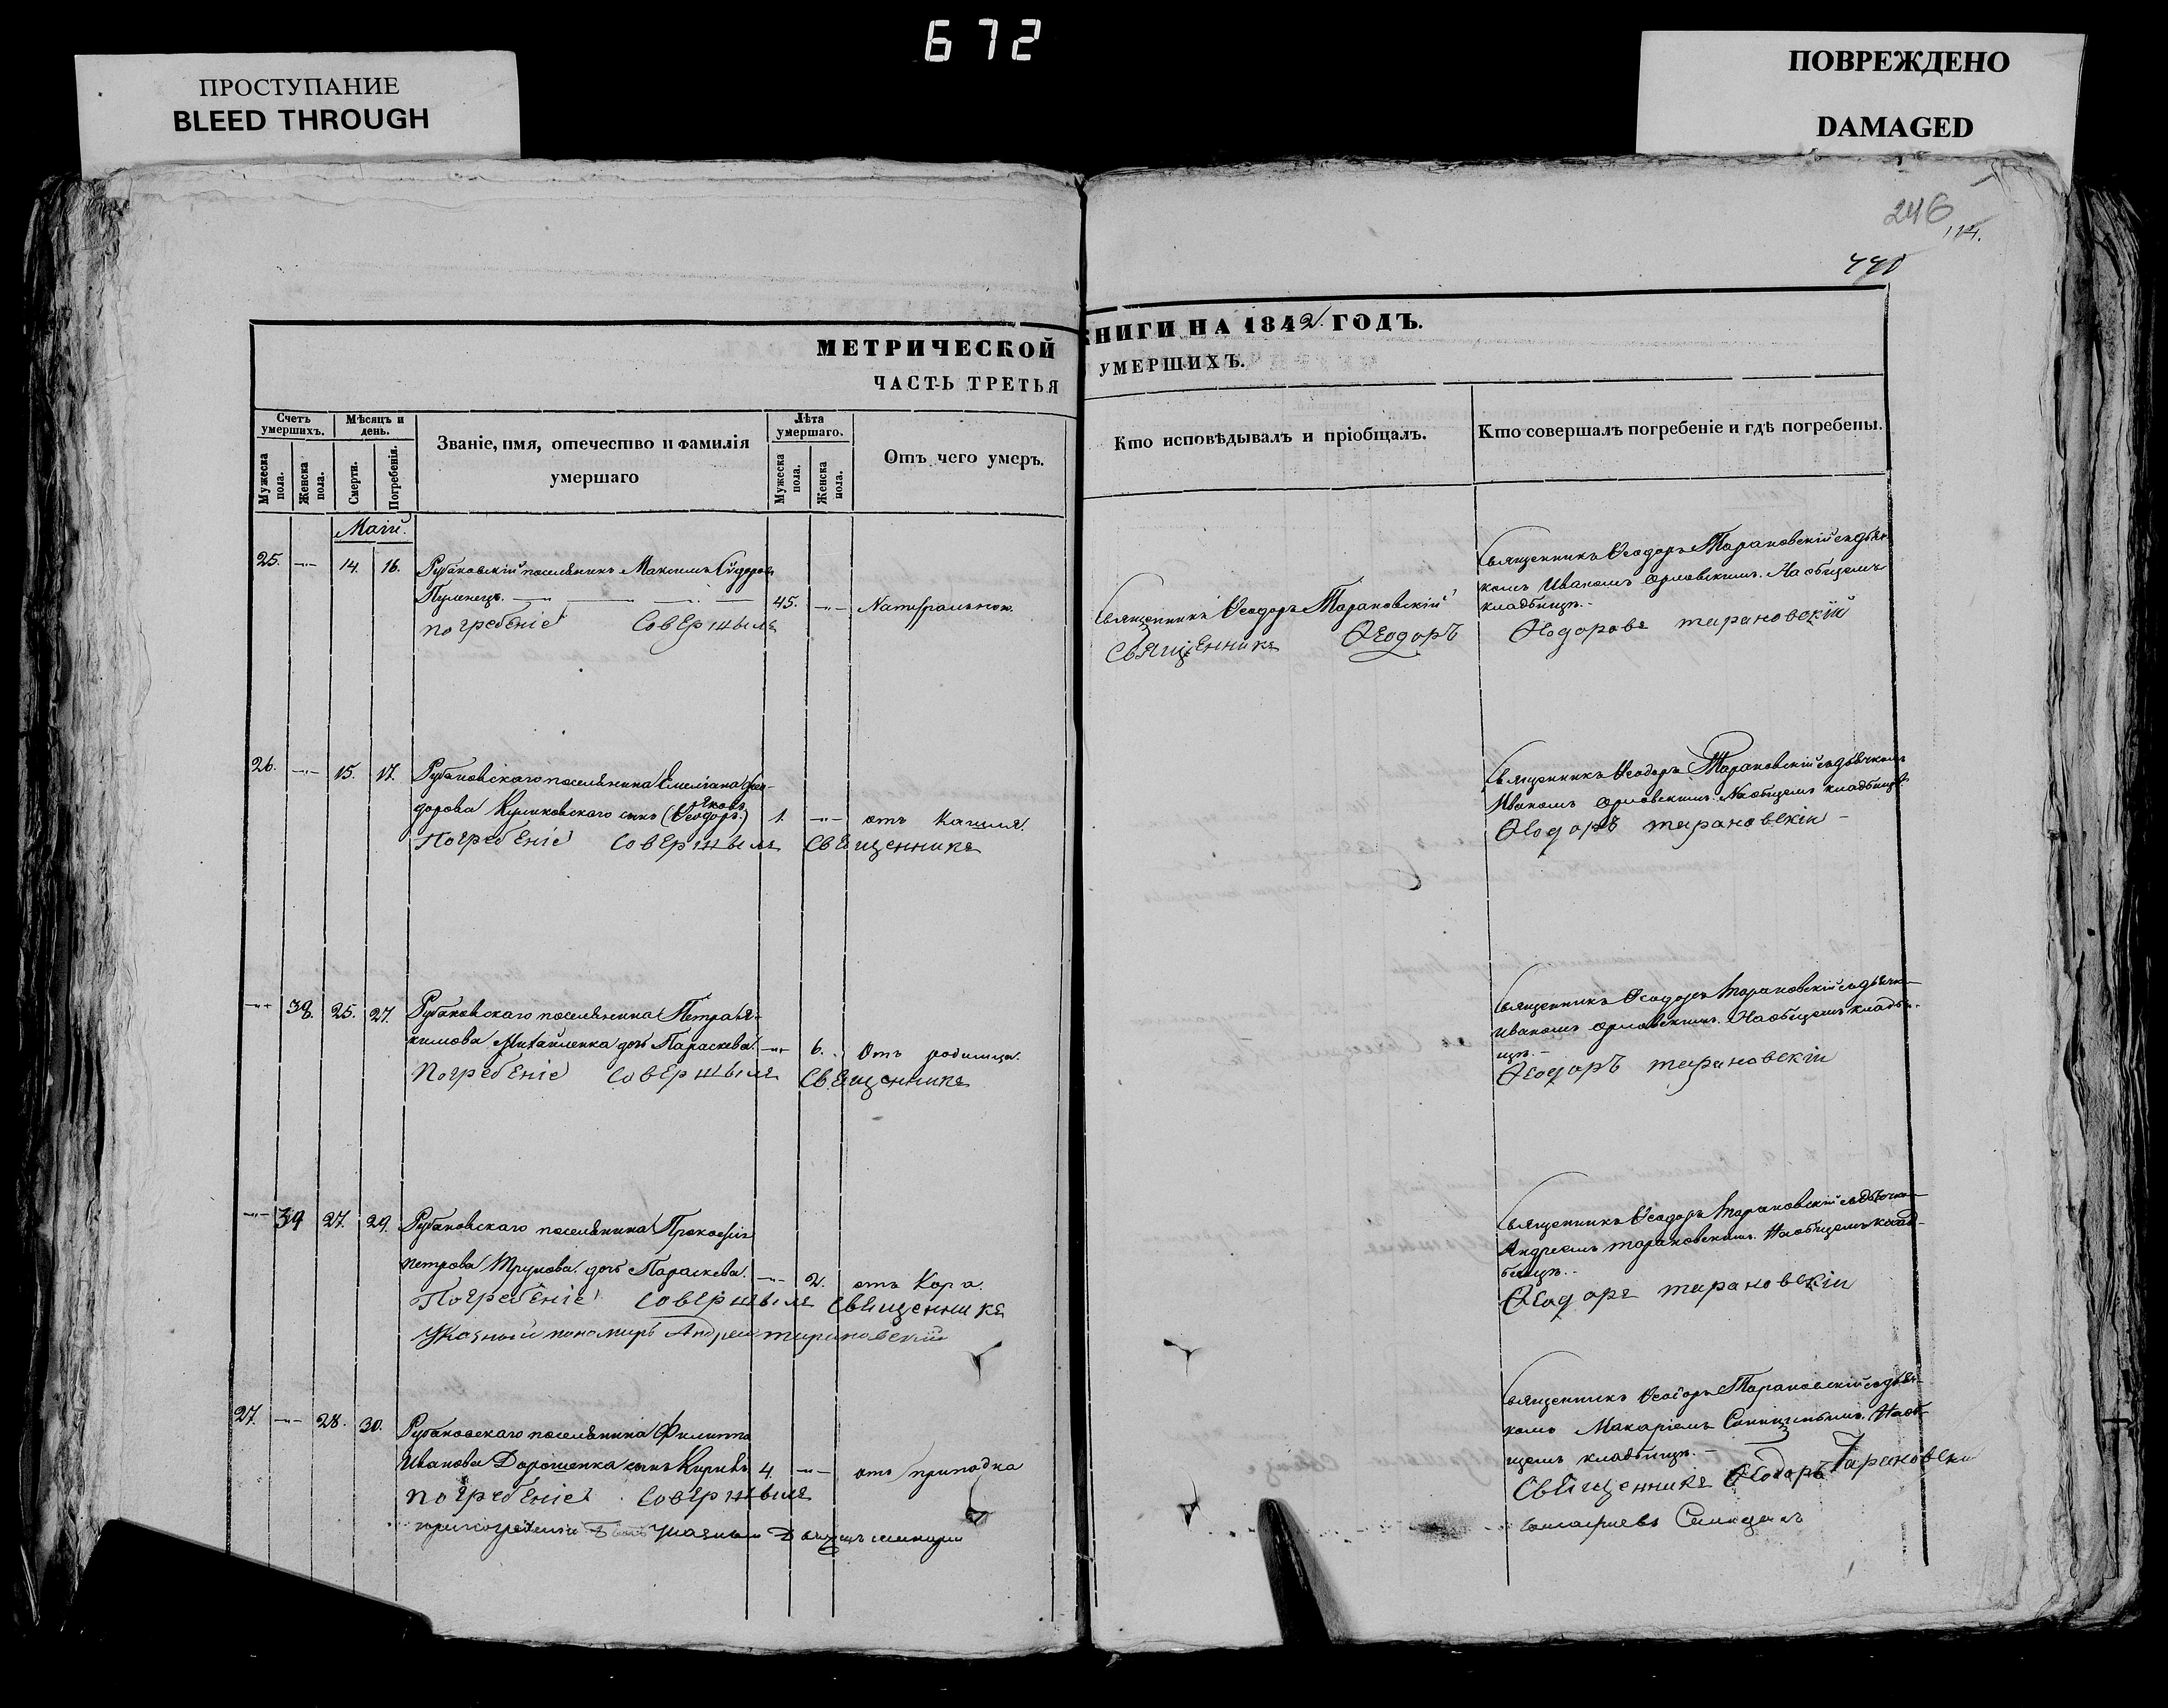 672
ПРОСТУПАНИЕ
BLEED THROUGH
ПОВРЕЖДЕНО
DAMAGED
246
МЕТРИЧЕСКОЙ
ЧАСТЬ ТРЕТЬЯ
Счетъ умершихъ.
Мужеска пола.
Женска пола.
Мѣсяцъ и день.
Смерти.
Погребенія.
Званіе, имя, отечество и фамилія
умершаго
Лѣта умершаго.
Мужеска пола.
Женска пола.
Отъ чего умеръ.
КНИГИ НА 1842 ГОДЪ.
УМЕРШИХЪ.
Кто исповѣдывалъ и пріобщалъ.
Кто совершалъ погребеніе и гдѣ погребены.
Маій.
25. —"— 14. 16. Рубановскій поселянинъ Максимъ Сидоровъ
45. —"— Натуральною.
погребеніе совершылъ
Священникъ Ѳеодоръ Тарановскій
Священникъ Ѳеодоръ
Священникъ Ѳеодоръ Тарановскій съ дьяч
комъ Иваномъ Орловскимъ. На общемъ
кладбищѣ.
Тарановскій
26. —"— 15. 17. Рубановскаго поселянина Емеліана Ѳео-
Яковъ
дорова Куликовскаго сынъ (Ѳеодоръ.) 1. —"— отъ кашля.
Погребеніе совершылъ Священникъ
Священникъ Ѳеодоръ Тарановскій съ дьячкомъ
Иваномъ Орловскимъ. На общемъ кладбищѣ.
Ѳеодоръ тарановскій
—"— 38. 25. 27. Рубановскаго поселянина Петра Я-
кимова Михайленка дочь Параскева. —"— 6. Отъ родимца.
Погребеніе совершылъ Священникъ
Священникъ Ѳеодоръ Тарановскій съ дьячк-
Иваномъ Орловскимъ. На общемъ кладби-
щѣ.
Ѳеодоръ тарановскій
—"— 39 27. 29. Рубановскаго поселянина Прокофія
петрова дочь Параскева. —"— 2. отъ Кора.
Погребеніе совершылъ Священникъ
Указный пономарь Андрей тарановскій
Священникъ Ѳеодоръ Тарановскій съ дьячко
Андреемъ тарановскимъ. На общемъ клад-
бищѣ.
Ѳеодоръ тарановскій
27. —"— 28. 30. Рубановскаго поселянина Филиппа
Иванова Дорошенка сынъ Кирилъ 4. —"— отъ припадка
погребеніе совершылъ
Священникъ Ѳеодоръ Тарановскій съ дья-
комъ Макаріемъ Синицынымъ. На об-
щемъ кладбищѣ.
Священникъ Ѳеодоръ Тарановскі